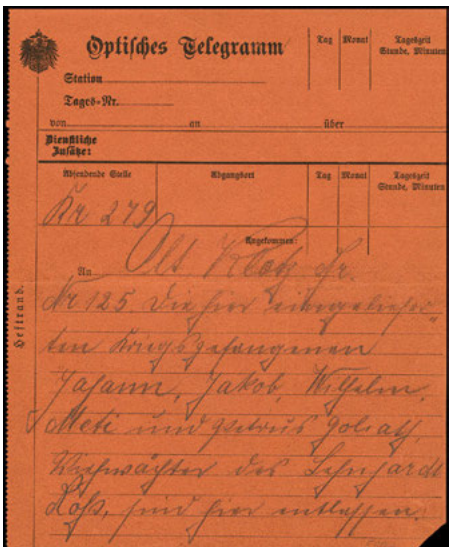 Optisches Telegramm
Tag Monat Tageszeit
Stunde, Minuten
Station
Tages-Nr.
von an über
Dienstliche
Zusätze:
Absendende Stelle Abgangsort Tag Monat Tageszeit
Stunde, Minuten
Nr 279
Angekommen:
An Olt
Nr 125. Die hier eingeliefer-
ten Kriegsgefangenen
Johann, Jakob, Wilhelm,
und Petrus Goliath,
Viehwächter des Lehnhardt
sind hier entlassen.
Heftrand.